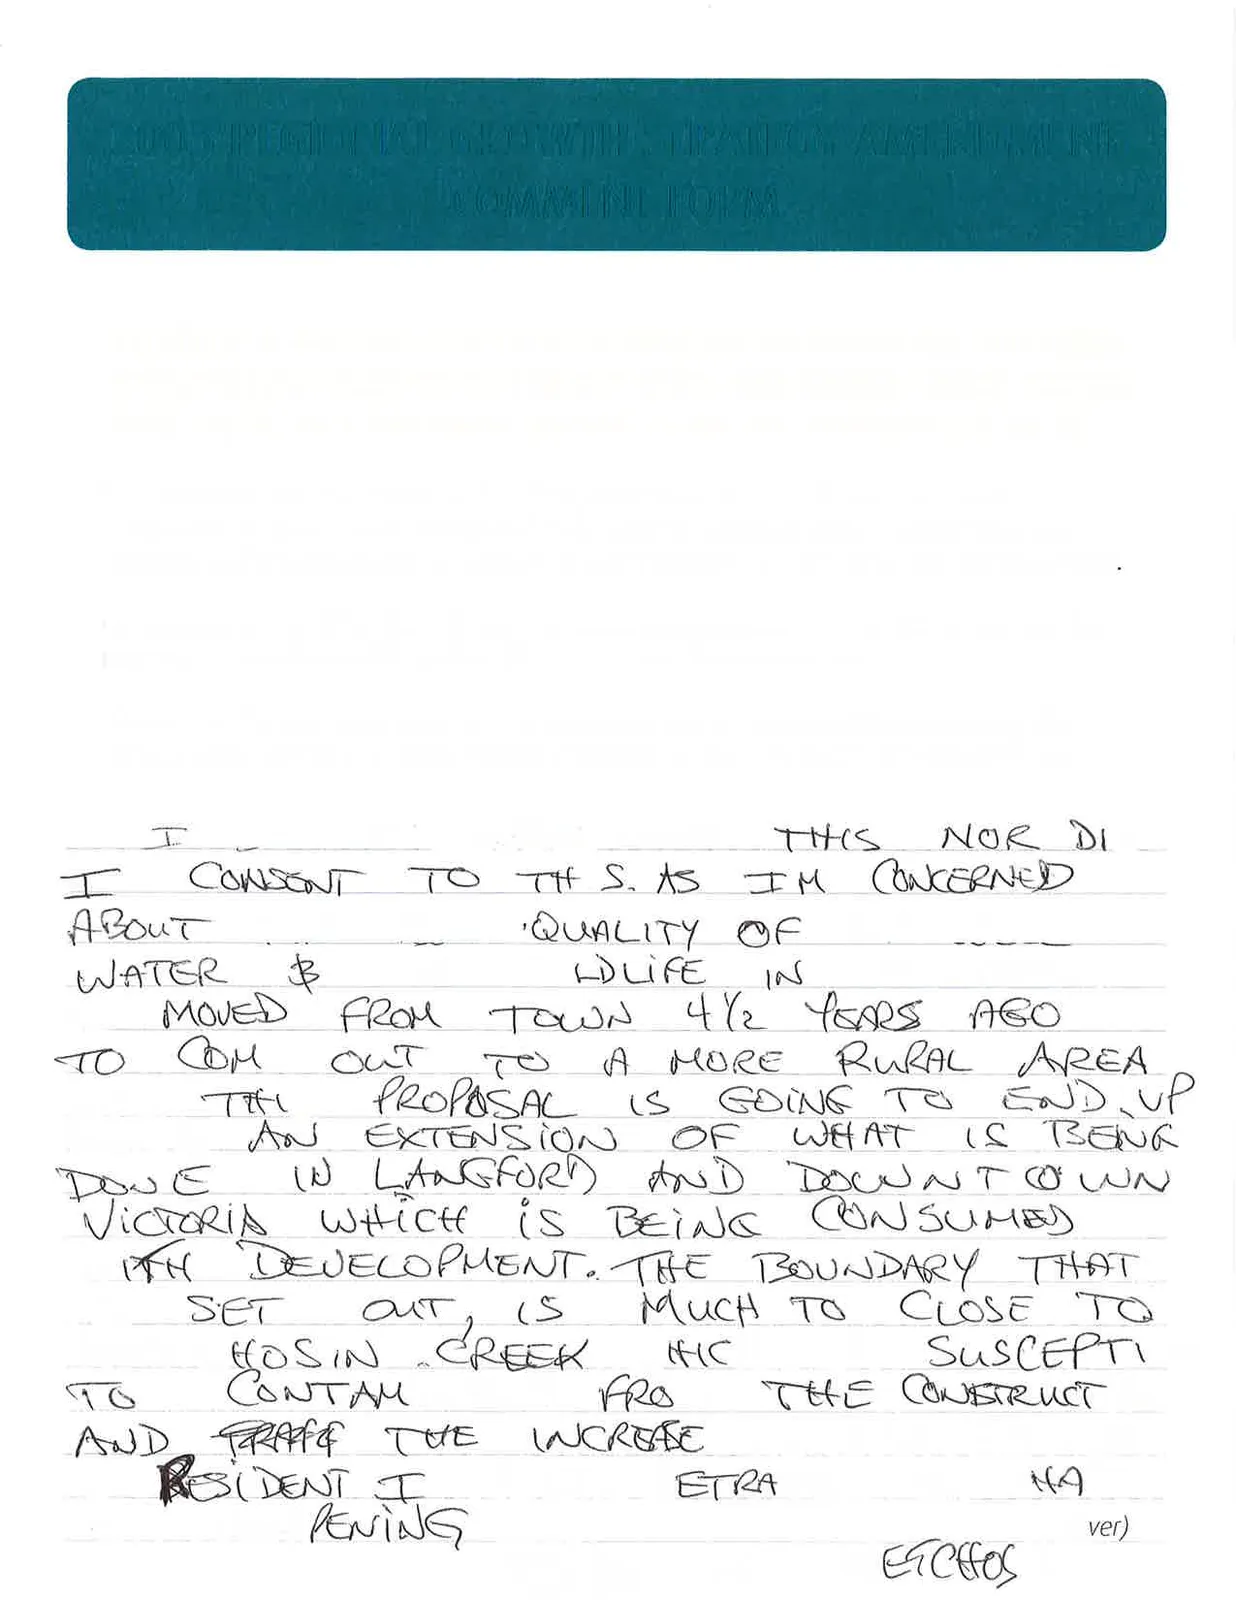 COMMENT FORM
I THIS NOR DI
I CONSENT TO TH S. AS IM CONCERNED
ABOUT QUALITY OF
WATER & LDLIFE IN
MOVED FROM TOWN 4 1/2 YEARS AGO
TO COM OUT TO A MORE RURAL AREA
TH PROPOSAL IS GOING TO END UP
AN EXTENSION OF WHAT IS BEING
DONE IN LANGFORD AND DOWNTOWN
VICTORIA WHICH IS BEING CONSUMED
ITH DEVELOPMENT. THE BOUNDARY THAT
SET OUT, IS MUCH TO CLOSE TO
CREEK HIC SUSCEPTI
TO CONTAM FRO THE CONSTRUCT
AND THE INCREASE
RESIDENT I ETRA HA
PENING
ver)